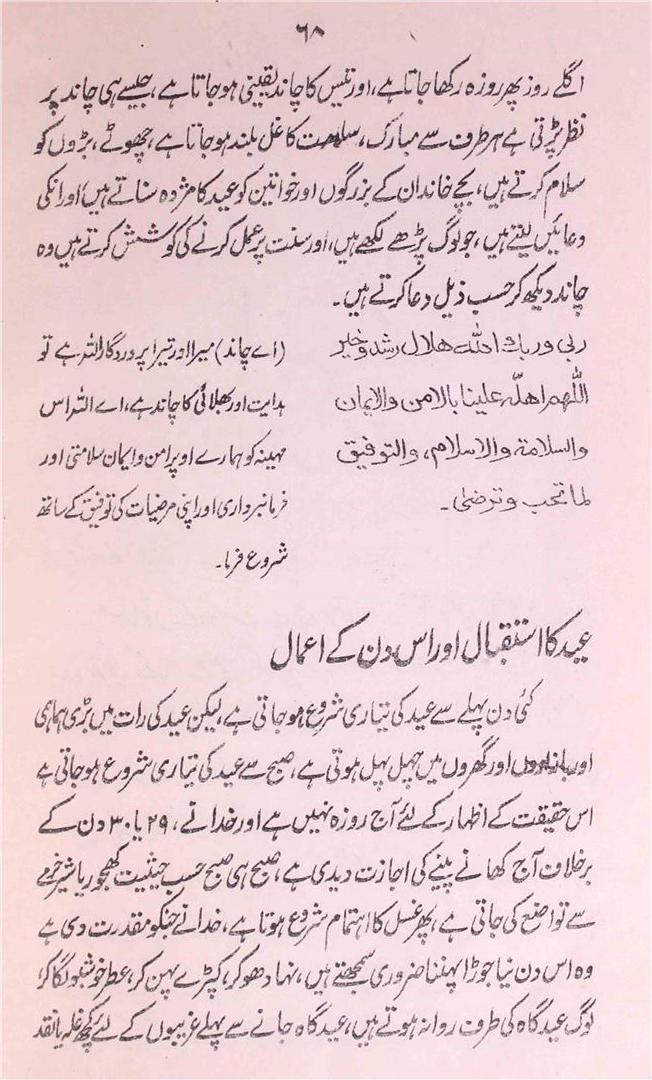 ۶۸
اگلے روز پھر روزہ رکھا جاتا ہے، اور تیس کا چاند یقینی ہو جاتا ہے، جیسے ہی چاند پر
نظر پڑتی ہے ہر طرف سے مبارک، سلامت کا غل بلند ہو جاتا ہے، چھوٹے، بڑوں کو
سلام کرتے ہیں، بچے خاندان کے بزرگوں اور خواتین کو عید کا مژدہ سناتے ہیں، اور انکی
دعائیں لیتے ہیں، جو لوگ پڑھے لکھے ہیں، اور سنت پر عمل کرنے کی کوشش کرتے ہیں وہ
چاند دیکھ کر حسب ذیل دعا کرتے ہیں۔
ربی وربك اللہ هلال رشد وخیر
اللّٰهم اهلّه علینا بالامن والایمان
والسلامة والاسلام، والتوفیق
لما تحب وترضیٰ۔
(اے چاند) میرا اور تیرا پروردگار اللہ ہے تو
ہدایت اور بھلائی کا چاند ہے، اے اللہ اس
مہینہ کو ہمارے اوپر امن و ایمان سلامتی اور
فرمانبرداری اور اپنی مرضیات کی توفیق کے ساتھ
شروع فرما۔
عید کا استقبال اور اس دن کے اعمال
کئی دن پہلے سے عید کی تیاری شروع ہو جاتی ہے، لیکن عید کی رات میں بڑی ہماہمی
اور بازاروں اور گھروں میں چہل پہل ہوتی ہے، صبح سے عید کی تیاری شروع ہو جاتی ہے
اس حقیقت کے اظہار کے لئے آج روزہ نہیں ہے اور خدا نے، ۲۹ یا ۳۰ دن کے
برخلاف آج کھانے پینے کی اجازت دیدی ہے، صبح ہی صبح حسب حیثیت کھجور یا شیر خرمے
سے تواضع کی جاتی ہے، پھر غسل کا اہتمام شروع ہوتا ہے، خدا نے جنکو مقدرت دی ہے
وہ اس دن نیا جوڑا پہننا ضروری سمجھتے ہیں، نہا دھو کر، کپڑے پہن کر، عطر خوشبو لگا کر،
لوگ عیدگاہ کی طرف روانہ ہوتے ہیں، عیدگاہ جانے سے پہلے غریبوں کے لئے کچھ غلہ یا نقد